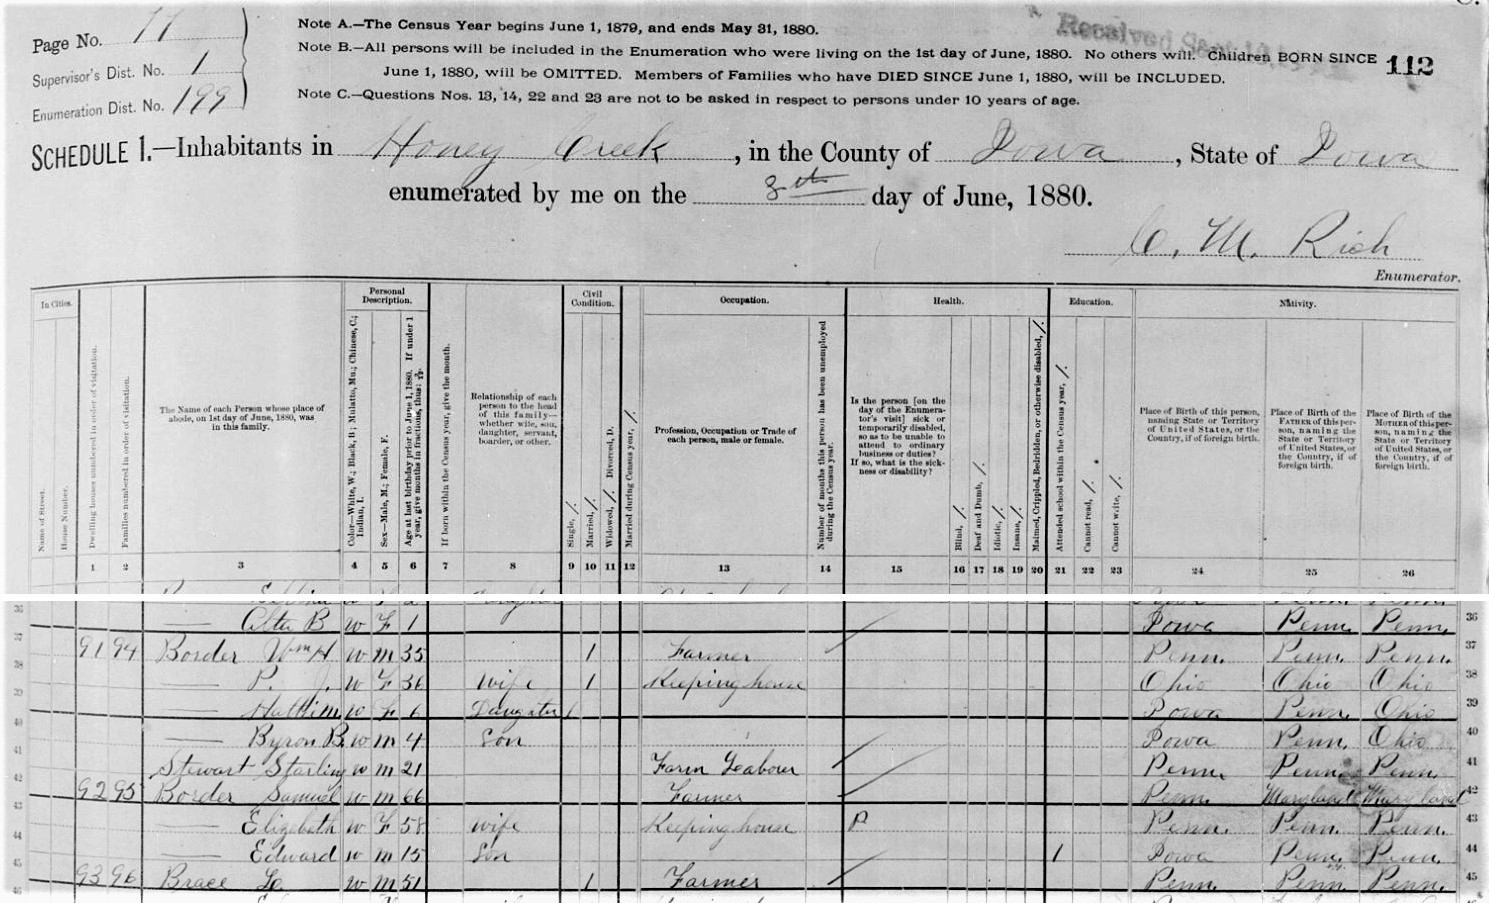 Page No. 17
Supervisor's Dist. No. 1
Enumeration Dist. No. 199
Note A.—The Census Year begins June 1, 1879, and ends May 31, 1880.
Note B.—All persons will be included in the Enumeration who were living on the 1st day of June, 1880. No others will. Children BORN SINCE
June 1, 1880, will be OMITTED. Members of Families who have DIED SINCE June 1, 1880, will be INCLUDED.
Note C.—Questions Nos. 13, 14, 22 and 23 are not to be asked in respect to persons under 10 years of age.
Received Sept
112
SCHEDULE 1.—Inhabitants in Honey Creek, in the County of Iowa, State of Iowa
enumerated by me on the 8th day of June, 1880.
C. M. Rich
Enumerator.
In Cities.
Name of Street.
House Number.
Dwelling houses numbered in order of visitation.
Families numbered in order of visitation.
The Name of each Person whose place of
abode, on 1st day of June, 1880, was
in this family.
Personal
Description.
Color—White, W.; Black, B.; Mulatto, Mu.; Chinese, C.;
Indian, I.
Sex—Male, M.; Female, F.
Age at last birthday prior to June 1, 1880. If under 1
year, give months in fractions, thus: 3/12.
If born within the Census year, give the month.
Relationship of each
person to the head
of this family—
whether wife, son,
daughter, servant,
boarder, or other.
Civil
Condition.
Single, /.
Married, /.
Widowed, /. Divorced, D.
Married during Census year, /.
Occupation.
Profession, Occupation or Trade of
each person, male or female.
Number of months this person has been unemployed
during the Census year.
Health.
Is the person [on the
day of the Enumera-
tor's visit] sick or
temporarily disabled,
so as to be unable to
attend to ordinary
business or duties?
If so, what is the sick-
ness or disability?
Blind, /.
Deaf and Dumb, /.
Idiotic, /.
Insane, /.
Maimed, Crippled, Bedridden, or otherwise disabled, /.
Education.
Attended school within the Census year, /.
Cannot read, /.
Cannot write, /.
Nativity.
Place of Birth of this person,
naming State or Territory
of United States, or the
Country, if of foreign birth.
Place of Birth of the
FATHER of this per-
son, naming the
State or Territory
of United States, or
the Country, if of
foreign birth.
Place of Birth of the
MOTHER of this per-
son, naming the
State or Territory
of United States, or
the Country, if of
foreign birth.
1 2 3 4 5 6 7 8 9 10 11 12 13 14 15 16 17 18 19 20 21 22 23 24 25 26
36 — Alta B W F 1 Iowa Penn. Penn. 36
37 91 94 Border Wm H W M 35 1 Farmer Penn. Penn. Penn. 37
38 — P. J. W F 36 wife 1 Keeping house Ohio Ohio Ohio 38
39 — Hattie M W F 6 Daughter / Iowa Penn. Ohio 39
40 — Byron B. W M 4 Son Iowa Penn. Ohio 40
41 Stewart Starling W M 21 Farm Labour Penn. Penn. Penn. 41
42 92 95 Border Samuel W M 66 Farmer Penn. Maryland Maryland 42
43 — Elizabeth W F 58 wife Keeping house P Penn. Penn. Penn. 43
44 — Edward W M 15 Son 1 Iowa Penn. Penn. 44
45 93 96 Brace W M 51 1 Farmer Penn. Penn. Penn. 45
46